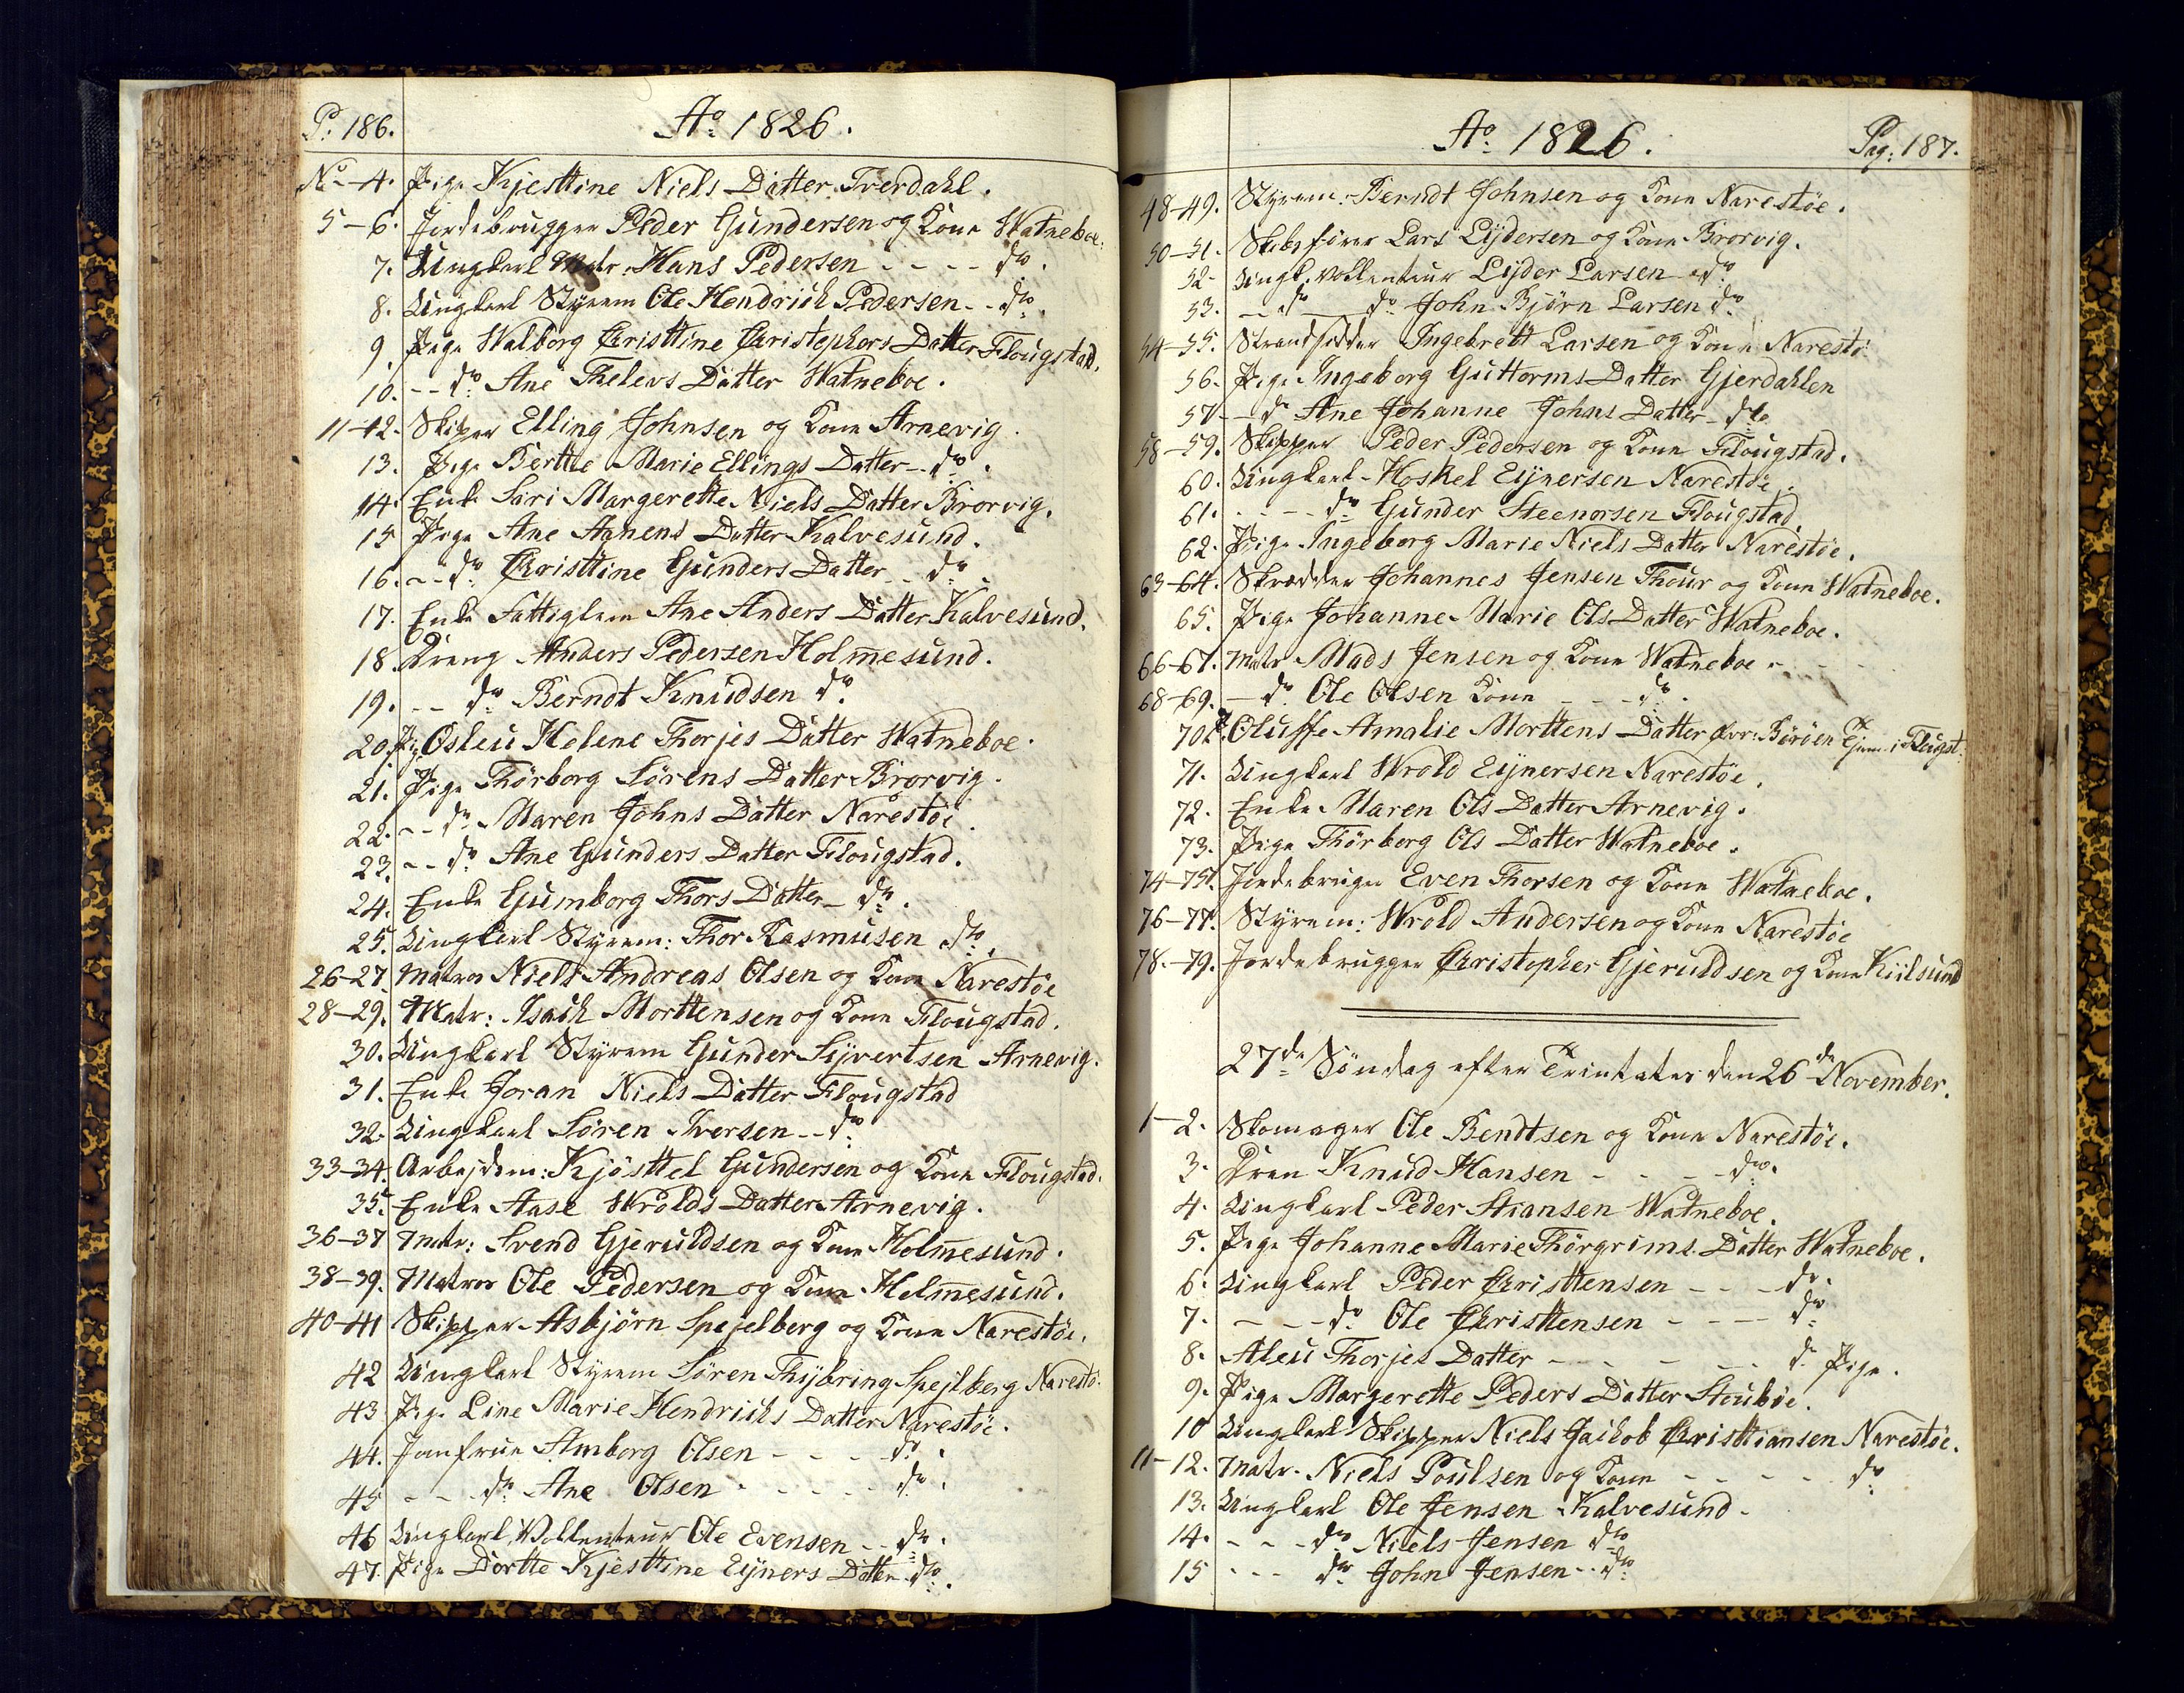 P: 186.
Ao: 1826.
No-4. Pige Kjesttine Niels Datter Tverdahl.
5-6. Jordebrugger Peder Gundersen og Kone Watneboe:
7. Ungkarl Matr: Hans Pedersen - - - - do.
8. Ungkarl Styrem Ole Hendrich Pedersen - - do.
9. Pige Walborg Christtine Christophers Datter Flougstad.
10. - - do Ane Thelevs Datter Watneboe.
11-12. Skipper Elling Johnsen og Kone Arnevig.
13. Pige Bertte Marie Ellings Datter - do.
14. Enke Siri Margerette Niels Datter Brorvig.
15 Pige Ane Aanens Datter Kalvesund.
16. - - do: Christtine Gunders Datter - - do.
17. Enke Fattiglem Ane Anders Datter Kalvesund.
18. Dreng Anders Pedersen Holmesund.
19. - - do Berndt Knudsen do.
20. Pig Osleu Helene Thorjes Datter Watneboe.
21. Pige Thörborg Sörens Datter Brorvig.
22. - - do Maren Johns Datter Narestöe.
23. - - do Ane Gunders Datter Flougstad.
24. Enke Gumborg Thors Datter - do.
25. Ungkarl Styrem: Thor Rasmusen do.
26-27. Matros Niels Andreas Olsen og Kone Narestöe
28-29. Matr: Isach Morttensen og Kone Flougstad.
30. Ungkarl Styrem Gunder Sijvertsen Arnevig.
31. Enke Joran Niels Datter Flougstad
32. Ungkarl Sören Iversen - - do
33-34. Arbejdsm: Kjösttel Gundersen og Kone Flougstad.
35. Enke Aase Wrolds Datter Arnevig.
36-37 Matr: Svend Gjeruldsen og Kone Holmesund.
38-39. Matros Ole Pedersen og Kone Holmesund.
40-41 Skipper Asbjörn Spejelberg og Kone Narestöe.
42 Ungkarl Styrem Sören Thijbring Spejlberg Narestö.
43. Pige Line Marie Hendrichs Datter Narestöe.
44. Jomfrue Amborg Olsen - - - - do.
45 - - - do Ane Olsen - - - - - do.
46 Ungkarl Vollenteur Ole Evensen - - do.
47. Pige Dortte Kjesttine Eijners Datter do.
Ao: 1826.
Pag: 187.
48-49. Styrem: Berndt Johnsen og Kone Narestöe.
50-51. Skibsförer Lars Lijdersen og Kone Brorvig.
52- Ungk. Vollenteur Lijder Larsen do
53. - - do - - do John Bjørn Larsen do
54-55. Strandsidder Ingebrett Larsen og Kone Narestö
56. Pige Ingeborg Guttorms Datter Gjerdahlen
57. - do Ane Johanne Johns Datter - do
58-59. Skipper Peder Pedersen og Kone Flougstad.
60. Ungkarl Hoskel Eijnersen Narestöe.
61. - - - - do Gunder Steenorsen Flougstad.
62. Pige Ingeborg Marie Niels Datter Narestöe.
63-64. Skrædder Johannes Jensen Thour og Kone Watneboe.
65. Pige Johanne Marie Ols Datter Watneboe.
66-67. Matr Mads Jensen og Kone Watneboe -
68-69. - do Ole Olsen Kone - - - do.
70. P. Oluffe Amalie Morttens Datter Böröen Tjene i Flougst:
71. Ungkarl Wrold Eijnersen Narestöe.
72. Enke Maren Ols Datter Arnevig.
73. Pige Thörborg Ols Datter Watneboe.
74-75. Jordebruger Even Thorsen og Kone Watneboe.
76-77. Styrem: Wrold Andersen og Kone Narestöe
78-79. Jordebrugger Christopher Gjeruldsen og Kone Kiilsund
27de Söndag efter Trinitatis den 26de November.
1-2. Skomager Ole Bendtsen og Kone Narestöe.
3. Dren Knud Hansen - - - - do.
4. Ungkarl Peder Stiansen Watneboe.
5. Pige Johanne Marie Thörgrims Datter Watneboe.
6. Ungkarl Peder Christtensen - - - do.
7. - - - do. Ole Christtensen - - - - do
8. Aleu Thorjes Datter - - - - - do Pige.
9. Pige Margerette Peders Datter Stouböe.
10 Ungkarl Skipper Niels Jaikob Christtiansen Narestöe.
11-12. Matr. Niels Poulsen og Kone - - - - - do
13. Ungkarl Ole Jensen Kalvesund.
14. - - - do Niels Jensen do
15 - - - do John Jensen - - do